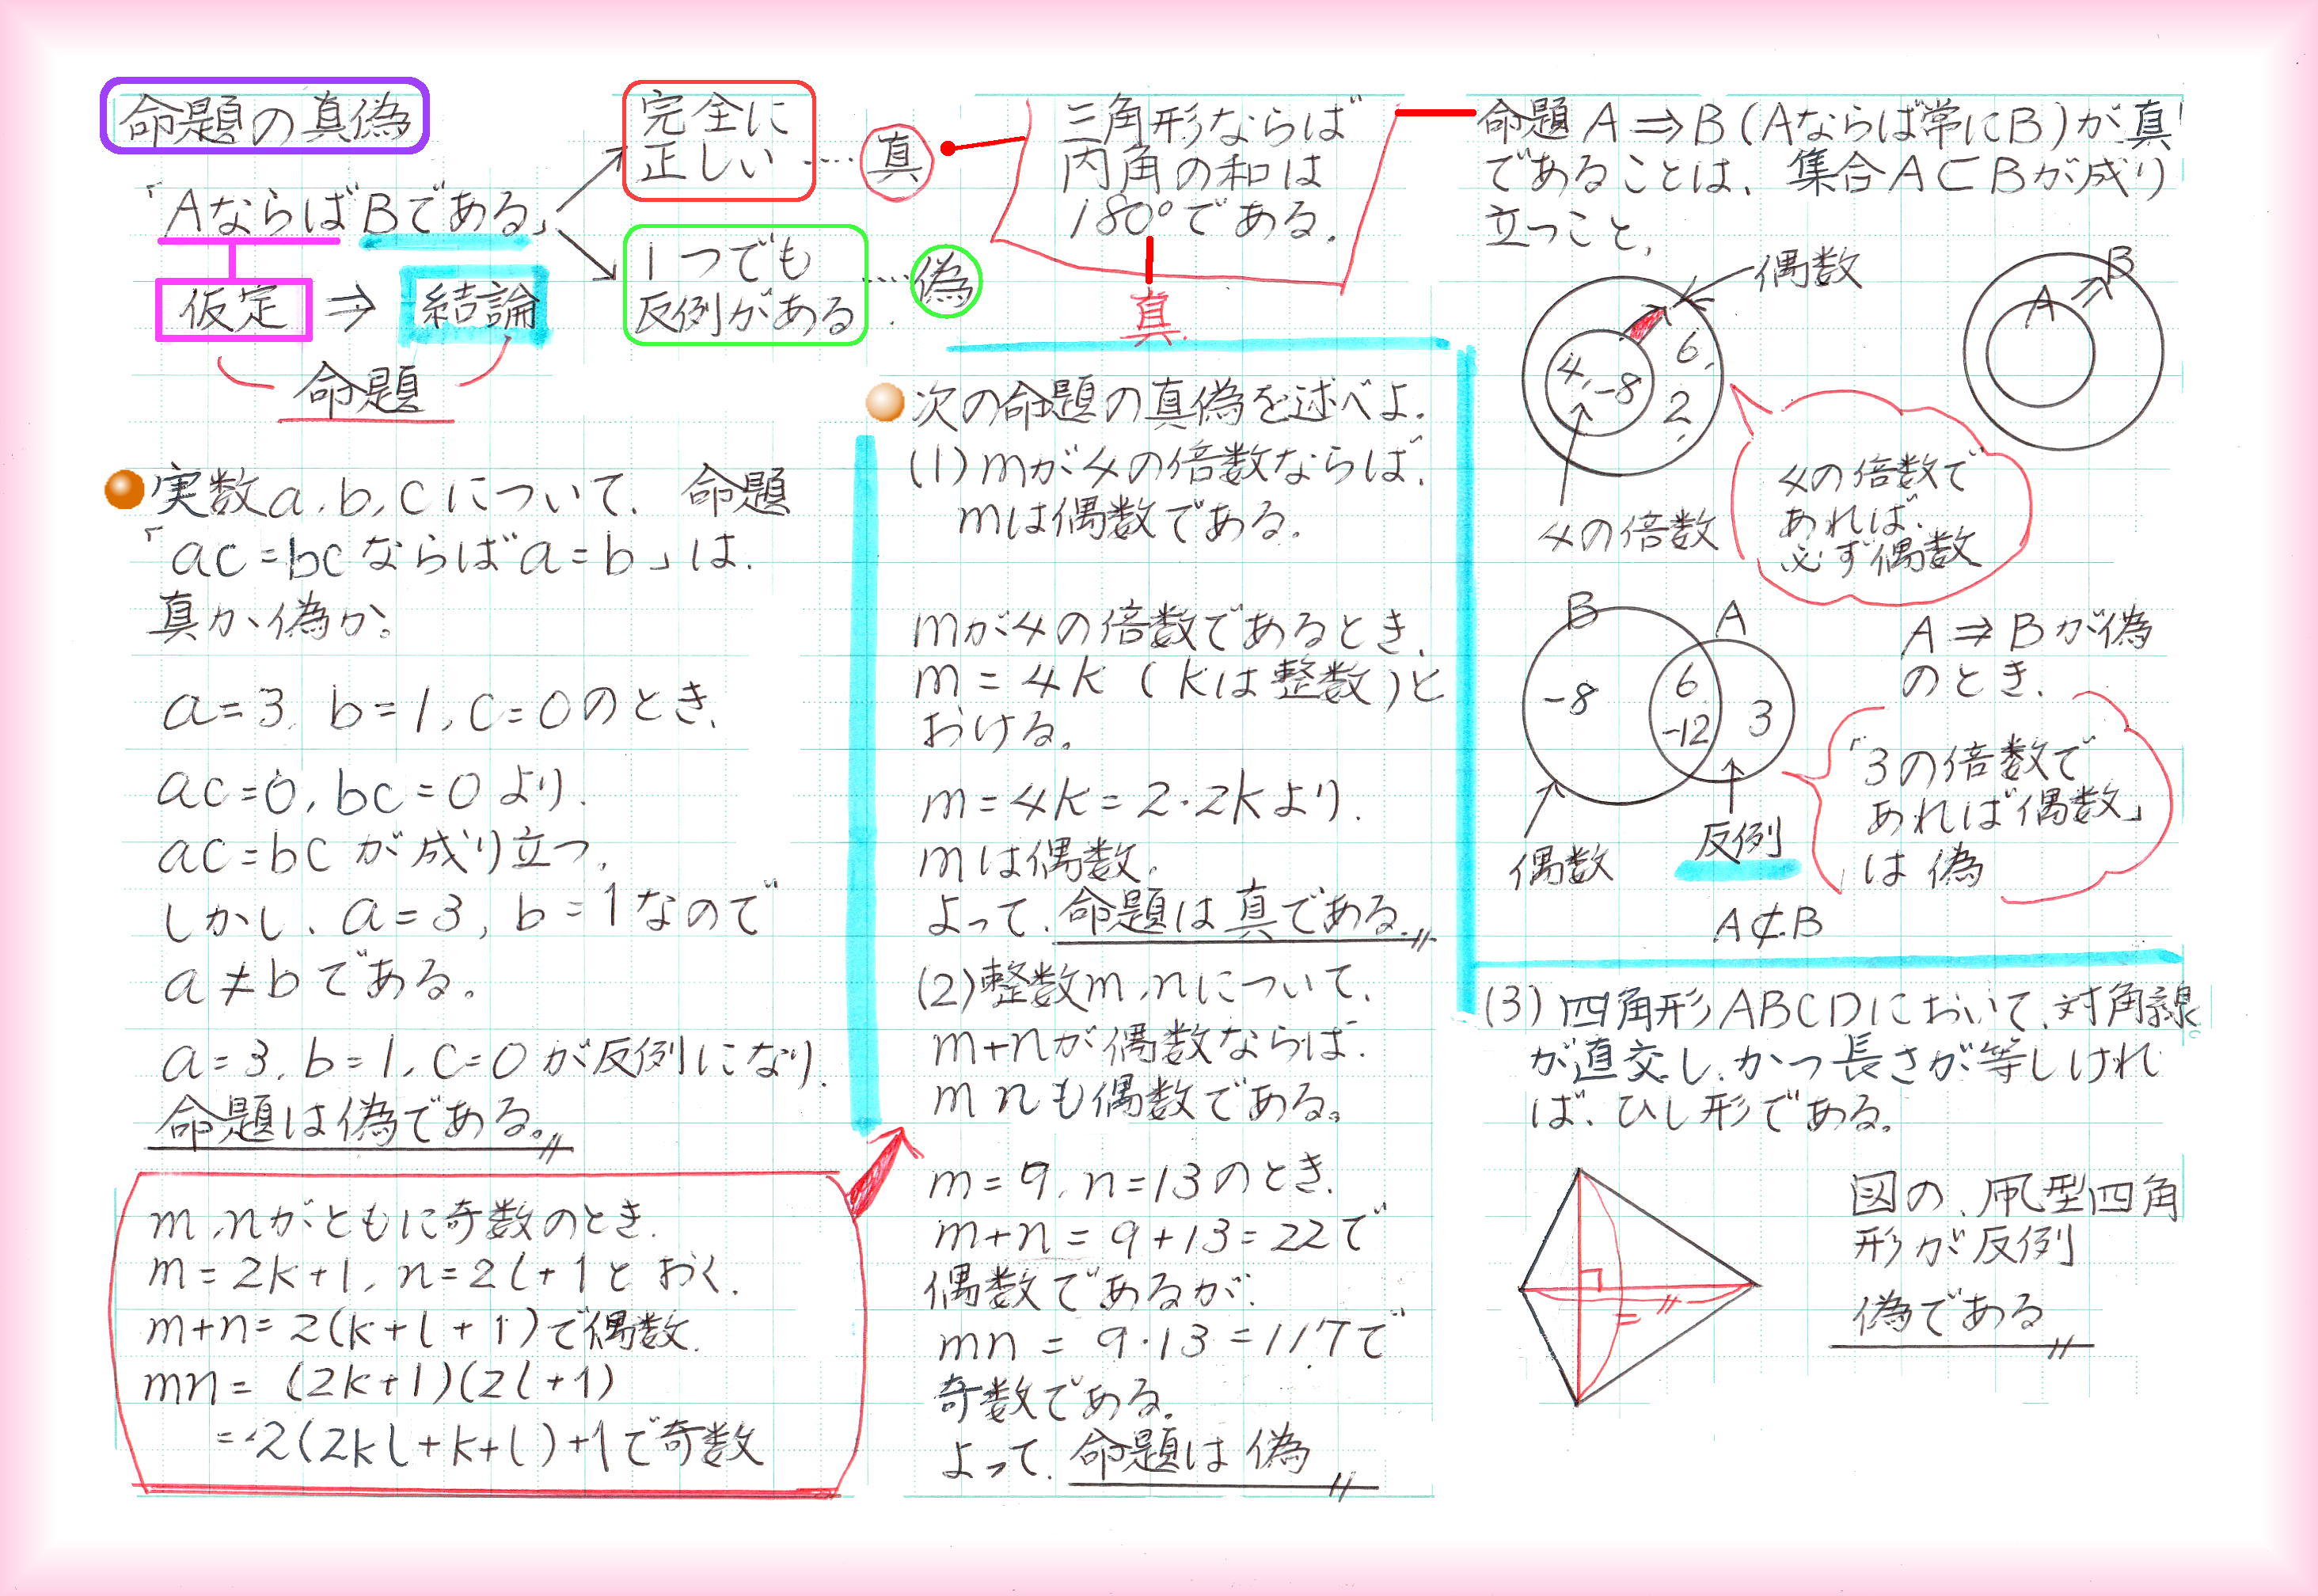 命題の真偽
「AならばBである」
仮定 ⇒ 結論
命題
完全に
正しい …… 真
1つでも
反例がある …… 偽
三角形ならば
内角の和は
180°である.
真.
実数a,b,cについて, 命題
「ac=bcならばa=b」は,
真か偽か。
a=3, b=1, c=0のとき,
ac=0, bc=0より,
ac=bcが成り立つ,
しかし, a=3, b=1なので
a≠bである。
a=3, b=1, c=0が反例になり,
命題は偽である。
m,nがともに奇数のとき,
m=2k+1, n=2l+1とおく,
m+n=2(k+l+1)で偶数.
mn=(2k+1)(2l+1)
=2(2kl+k+l)+1で奇数
次の命題の真偽を述べよ.
(1)mが4の倍数ならば,
mは偶数である.
mが4の倍数であるとき,
m=4k (kは整数)と
おける。
m=4k=2・2kより,
mは偶数,
よって, 命題は真である.
(2)整数m,nについて,
m+nが偶数ならば,
mnも偶数である。
m=9, n=13のとき,
m+n=9+13=22で
偶数であるが,
mn=9・13=117で
奇数である.
よって, 命題は偽
命題A⇒B(Aならば常にB)が真
であることは, 集合A⊂Bが成り
立つこと,
偶数
4, -8
6,
2,
4の倍数
A⇒B
4の倍数で
あれば,
必ず偶数
B A
-8
6
-12
3
偶数
反例
A⊄B
A⇒Bが偽
のとき,
「3の倍数で
あれば偶数」
は偽
(3)四角形ABCDにおいて,対角線
が直交し,かつ長さが等しけれ
ば, ひし形である。
図の, 凧型四角
形が反例
偽である